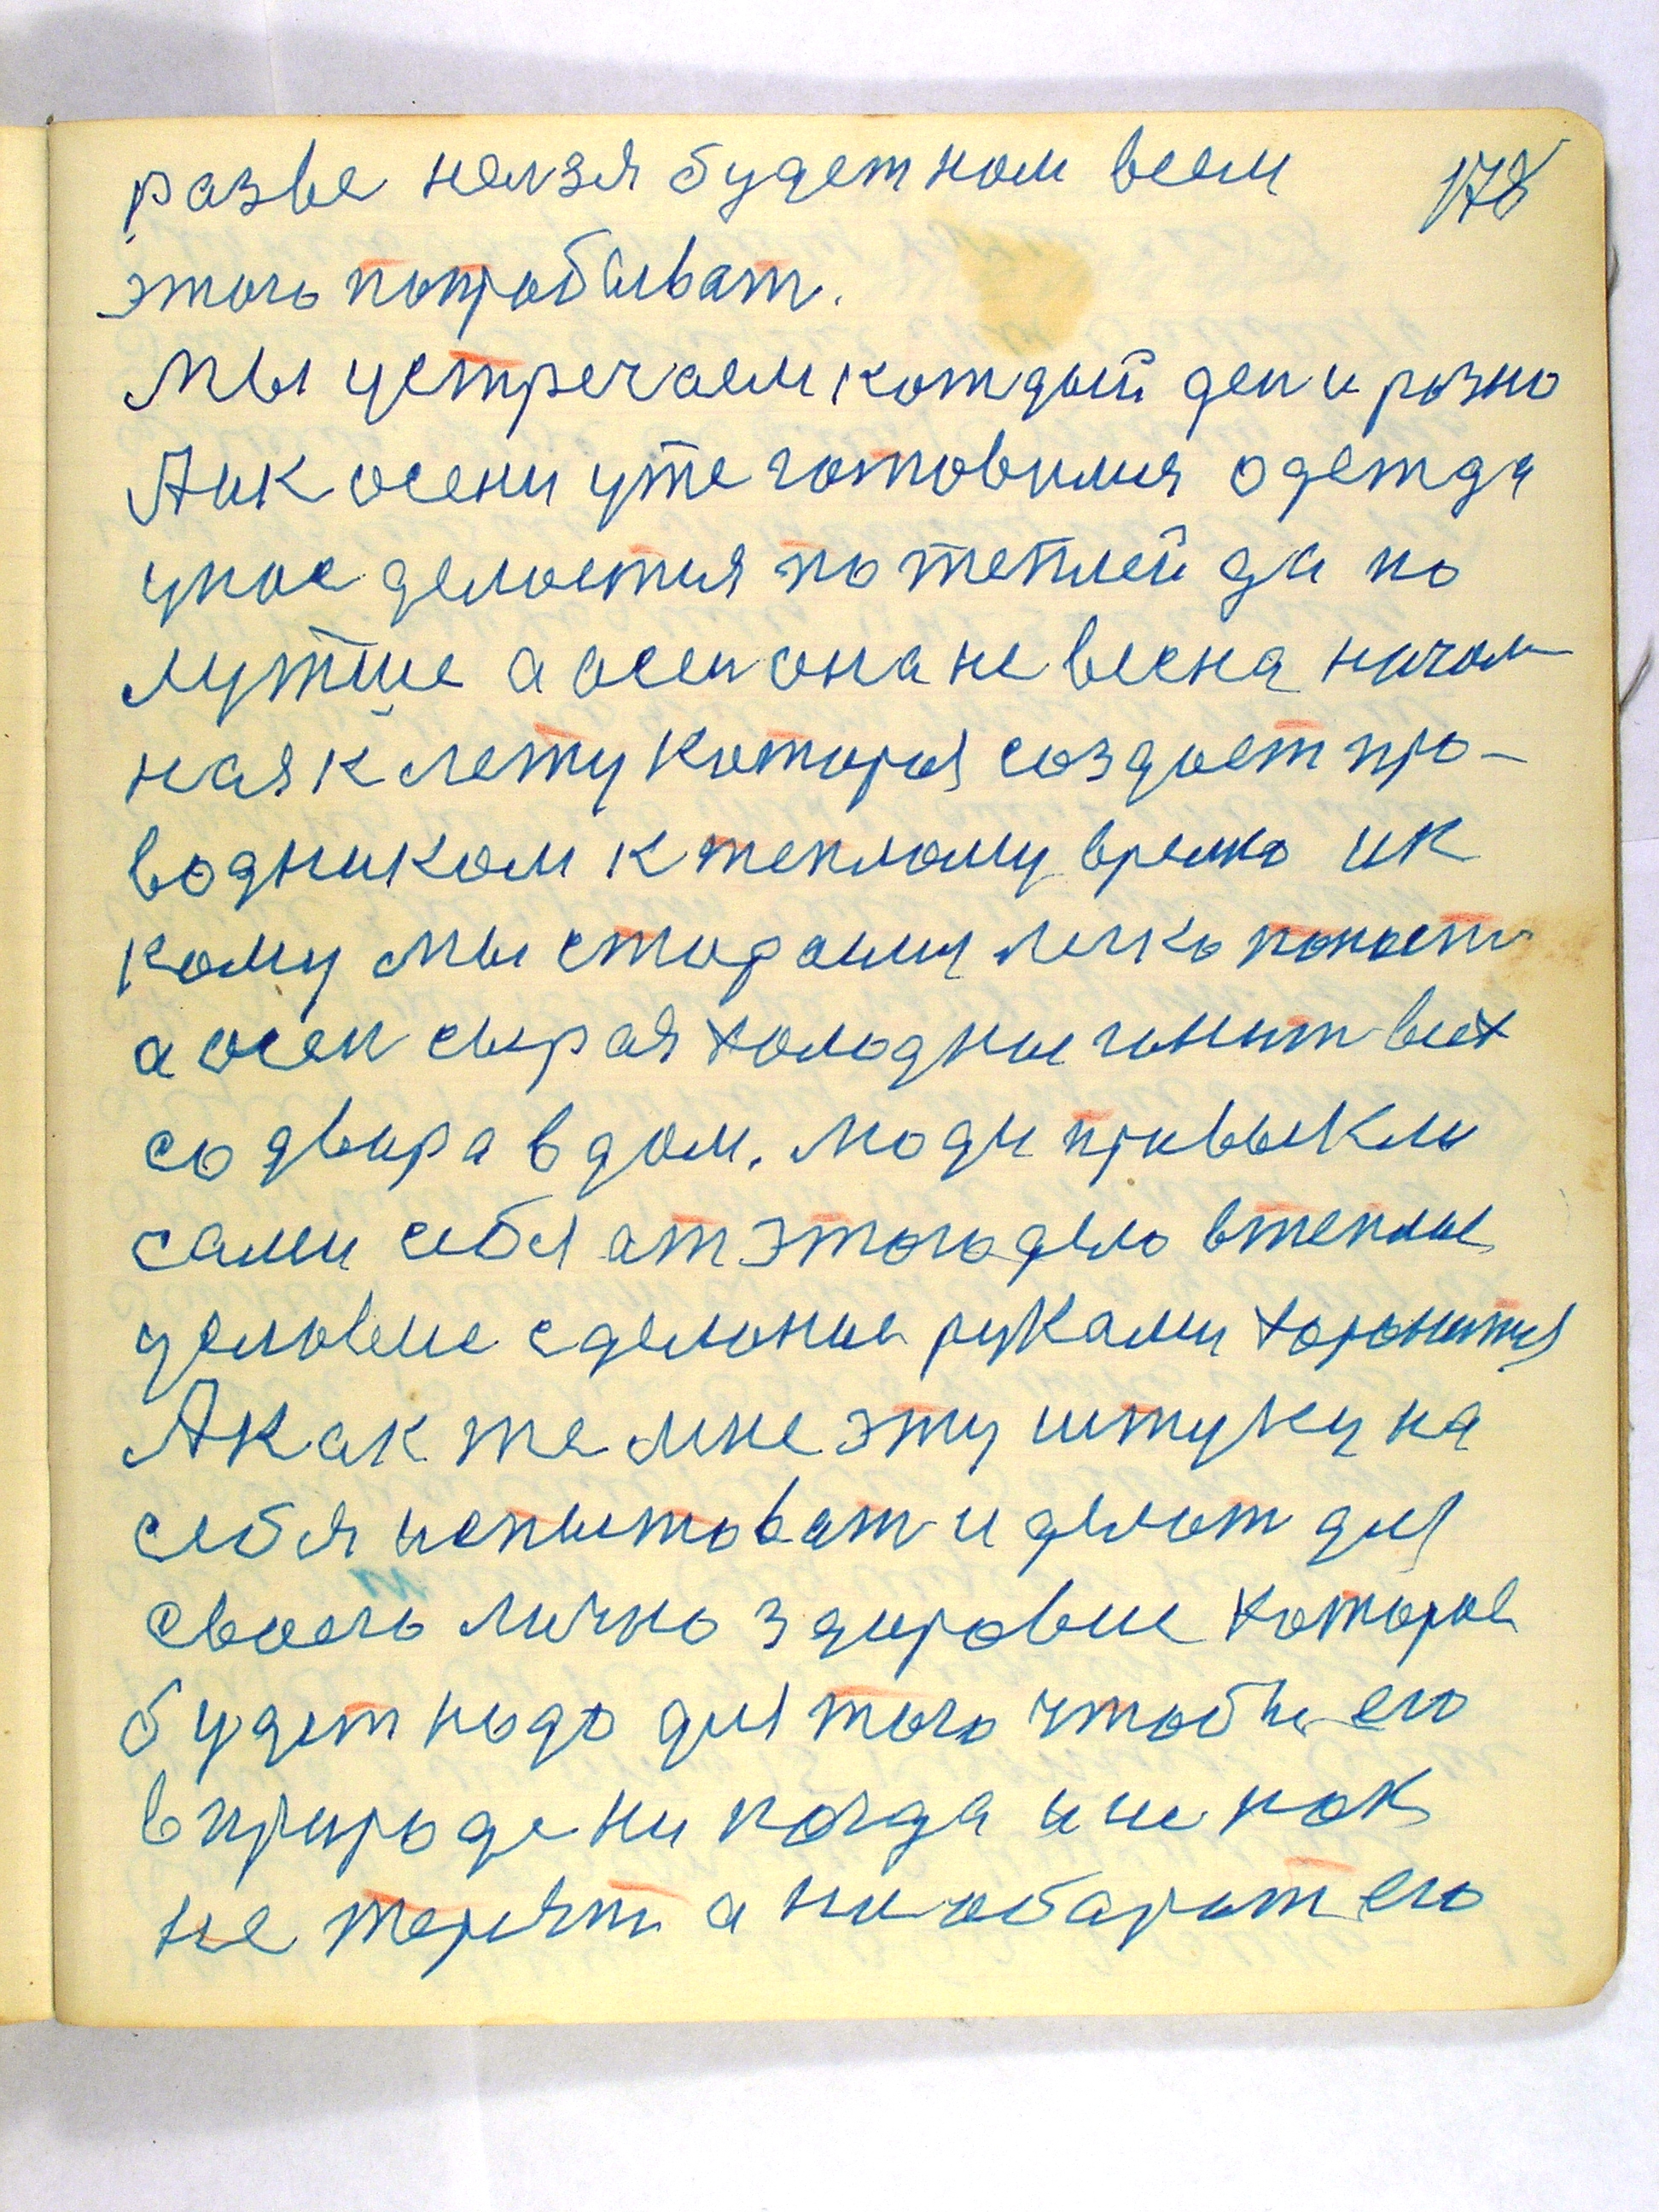 разве нелзя будет ном всем 178
этого попробывать.
Мы устречаем каждый ден и розно
А и к осени уже готовимся одежда
у нас делоется по теплей да по
лутше а осен она не весна начол
ная к лету которая создает про-
водником к теплому время и к
кому мы стораемся легко попасть
а осен сырая холодные гонит всех
со двора в дом. Люди привыкли
сами себя от этого дело в теплые
условеие сделоные руками хоронится
А как же мне эту штуку на
себя испытоват и делат для
своего лично здоровие которое
будет надо для того чтобы его
в природе ни когда и не как
не терять а на оборот его